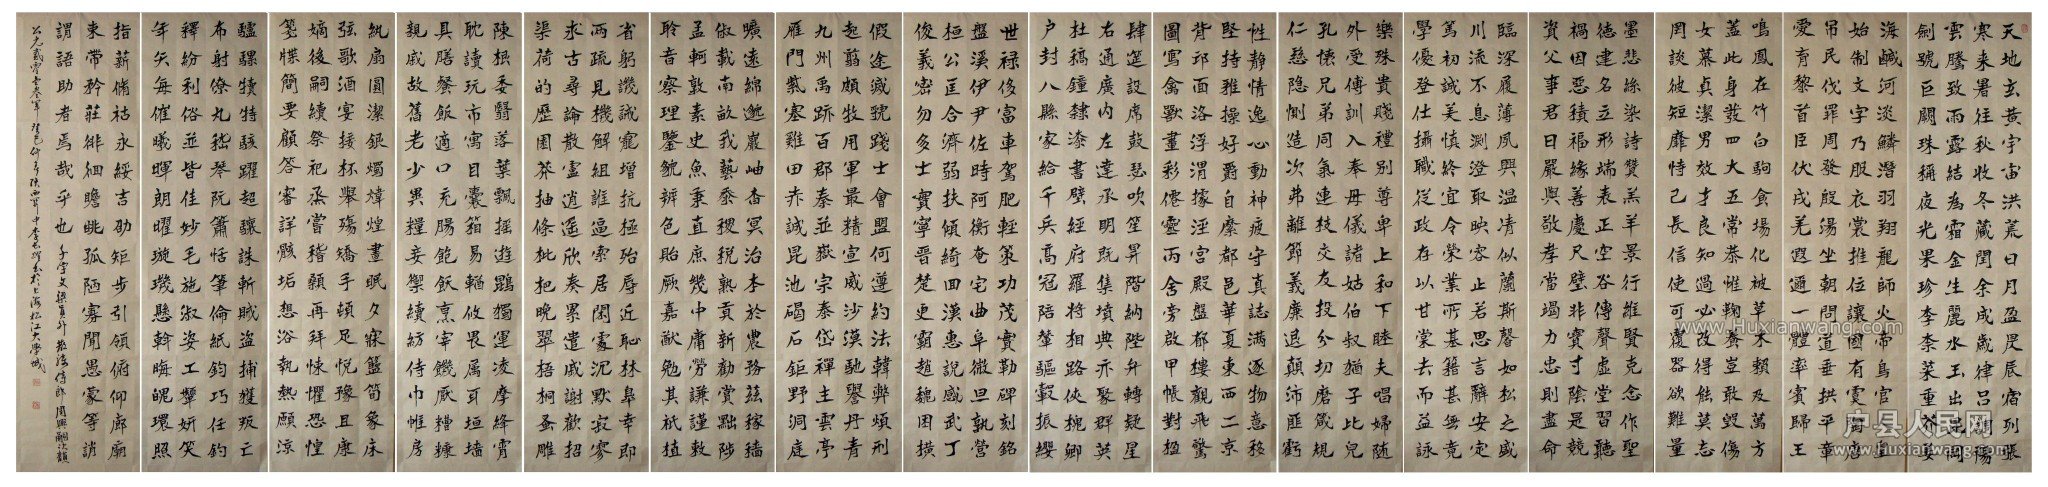 天地玄黃宇宙洪荒日月盈昃辰宿列張
寒来暑往秋收冬藏閏余成歲律吕調陽
雲騰致雨露結為霜金生麗水玉出崑岡
劍號巨闕珠稱夜光果珍李柰菜重芥薑
海鹹河淡鱗潛羽翔龍師火帝鳥官人皇
始制文字乃服衣裳推位讓國有虞陶唐
吊民伐罪周發殷湯坐朝問道垂拱平章
愛育黎首臣伏戎羌遐邇一體率賓歸王
鳴鳳在竹白駒食場化被草木賴及萬方
蓋此身髮四大五常恭惟鞠養豈敢毀傷
女慕貞潔男效才良知過必改得能莫忘
罔談彼短靡恃己長信使可覆器欲難量
墨悲絲染詩讚羔羊景行維賢克念作聖
德建名立形端表正空谷傳聲虛堂習聽
禍因惡積福緣善慶尺璧非寶寸陰是競
資父事君曰嚴與敬孝當竭力忠則盡命
臨深履薄夙興溫凊似蘭斯馨如松之盛
川流不息淵澄取映容止若思言辭安定
篤初誠美慎終宜令榮業所基籍甚無竟
學優登仕攝職從政存以甘棠去而益詠
樂殊貴賤禮別尊卑上和下睦夫唱婦隨
外受傅訓入奉母儀諸姑伯叔猶子比兒
孔懷兄弟同氣連枝交友投分切磨箴規
仁慈隱惻造次弗離節義廉退顛沛匪虧
性靜情逸心動神疲守真志滿逐物意移
堅持雅操好爵自縻都邑華夏東西二京
背邙面洛浮渭據涇宮殿盤郁樓觀飛驚
圖寫禽獸畫彩僊靈丙舍旁啟甲帳對楹
肆筵設席鼓瑟吹笙昇階納陛弁轉疑星
右通廣內左達承明既集墳典亦聚群英
杜稿鐘隸漆書壁經府羅將相路俠槐卿
戶封八縣家給千兵高冠陪輦驅轂振纓
世祿侈富車駕肥輕策功茂實勒碑刻銘
盤溪伊尹佐時阿衡奄宅曲阜微旦孰營
桓公匡合濟弱扶傾綺回漢惠說感武丁
俊義密勿多士實寧晉楚更霸趙魏困橫
假途滅虢踐土會盟何遵約法韓弊煩刑
起翦頗牧用軍最精宣威沙漠馳譽丹青
九州禹跡百郡秦並嶽宗泰岱禪主雲亭
雁門紫塞雞田赤誠昆池碣石鉅野洞庭
曠遠綿邈巖岫杳冥治本於農務茲稼穡
俶載南畝我藝黍稷稅熟貢新勸賞黜陟
孟軻敦素史魚秉直庶幾中庸勞謙謹敕
聆音察理鑒貌辨色貽厥嘉猷勉其祗植
省躬譏誡寵增抗極殆辱近恥林皋幸即
兩疏見機解組誰逼索居閑處沉默寂寥
求古尋論散慮逍遙欣奏累遣慼謝歡招
渠荷的歷園莽抽條枇杷晚翠梧桐蚤雕
陳根委翳落葉飄搖遊鵾獨運凌摩絳霄
耽讀玩市寓目囊箱易輶攸畏屬耳垣墻
具膳餐飯適口充腸飽飫烹宰饑厭糟糠
親戚故舊老少異糧妾禦績紡侍巾帷房
紈扇圓潔銀燭煒煌晝眠夕寐籃筍象床
弦歌酒宴接杯舉殤矯手頓足悅豫且康
嫡後嗣續祭祀烝嘗稽顙再拜悚懼恐惶
箋牒簡要顧答審詳骸垢想浴執熱願涼
驢騾犢特駭躍超驤誅斬賊盜捕獲叛亡
布射僚丸嵇琴阮簫恬筆倫紙鈞巧任釣
釋紛利俗並皆佳妙毛施淑姿工顰妍笑
年矢每催曦暉朗曜璇璣懸斡晦魄環照
指薪脩祜永綏吉劭矩步引領俯仰廊廟
束帶矜莊徘徊瞻眺孤陋寡聞愚蒙等誚
謂語助者焉哉乎也 千字文梁員外散騎侍郎周興嗣次韻
公元貳零壹叁年癸巳 書於上海松江大學城
房县人民网
www.Huxianwang.com
www.Huxianwang.com